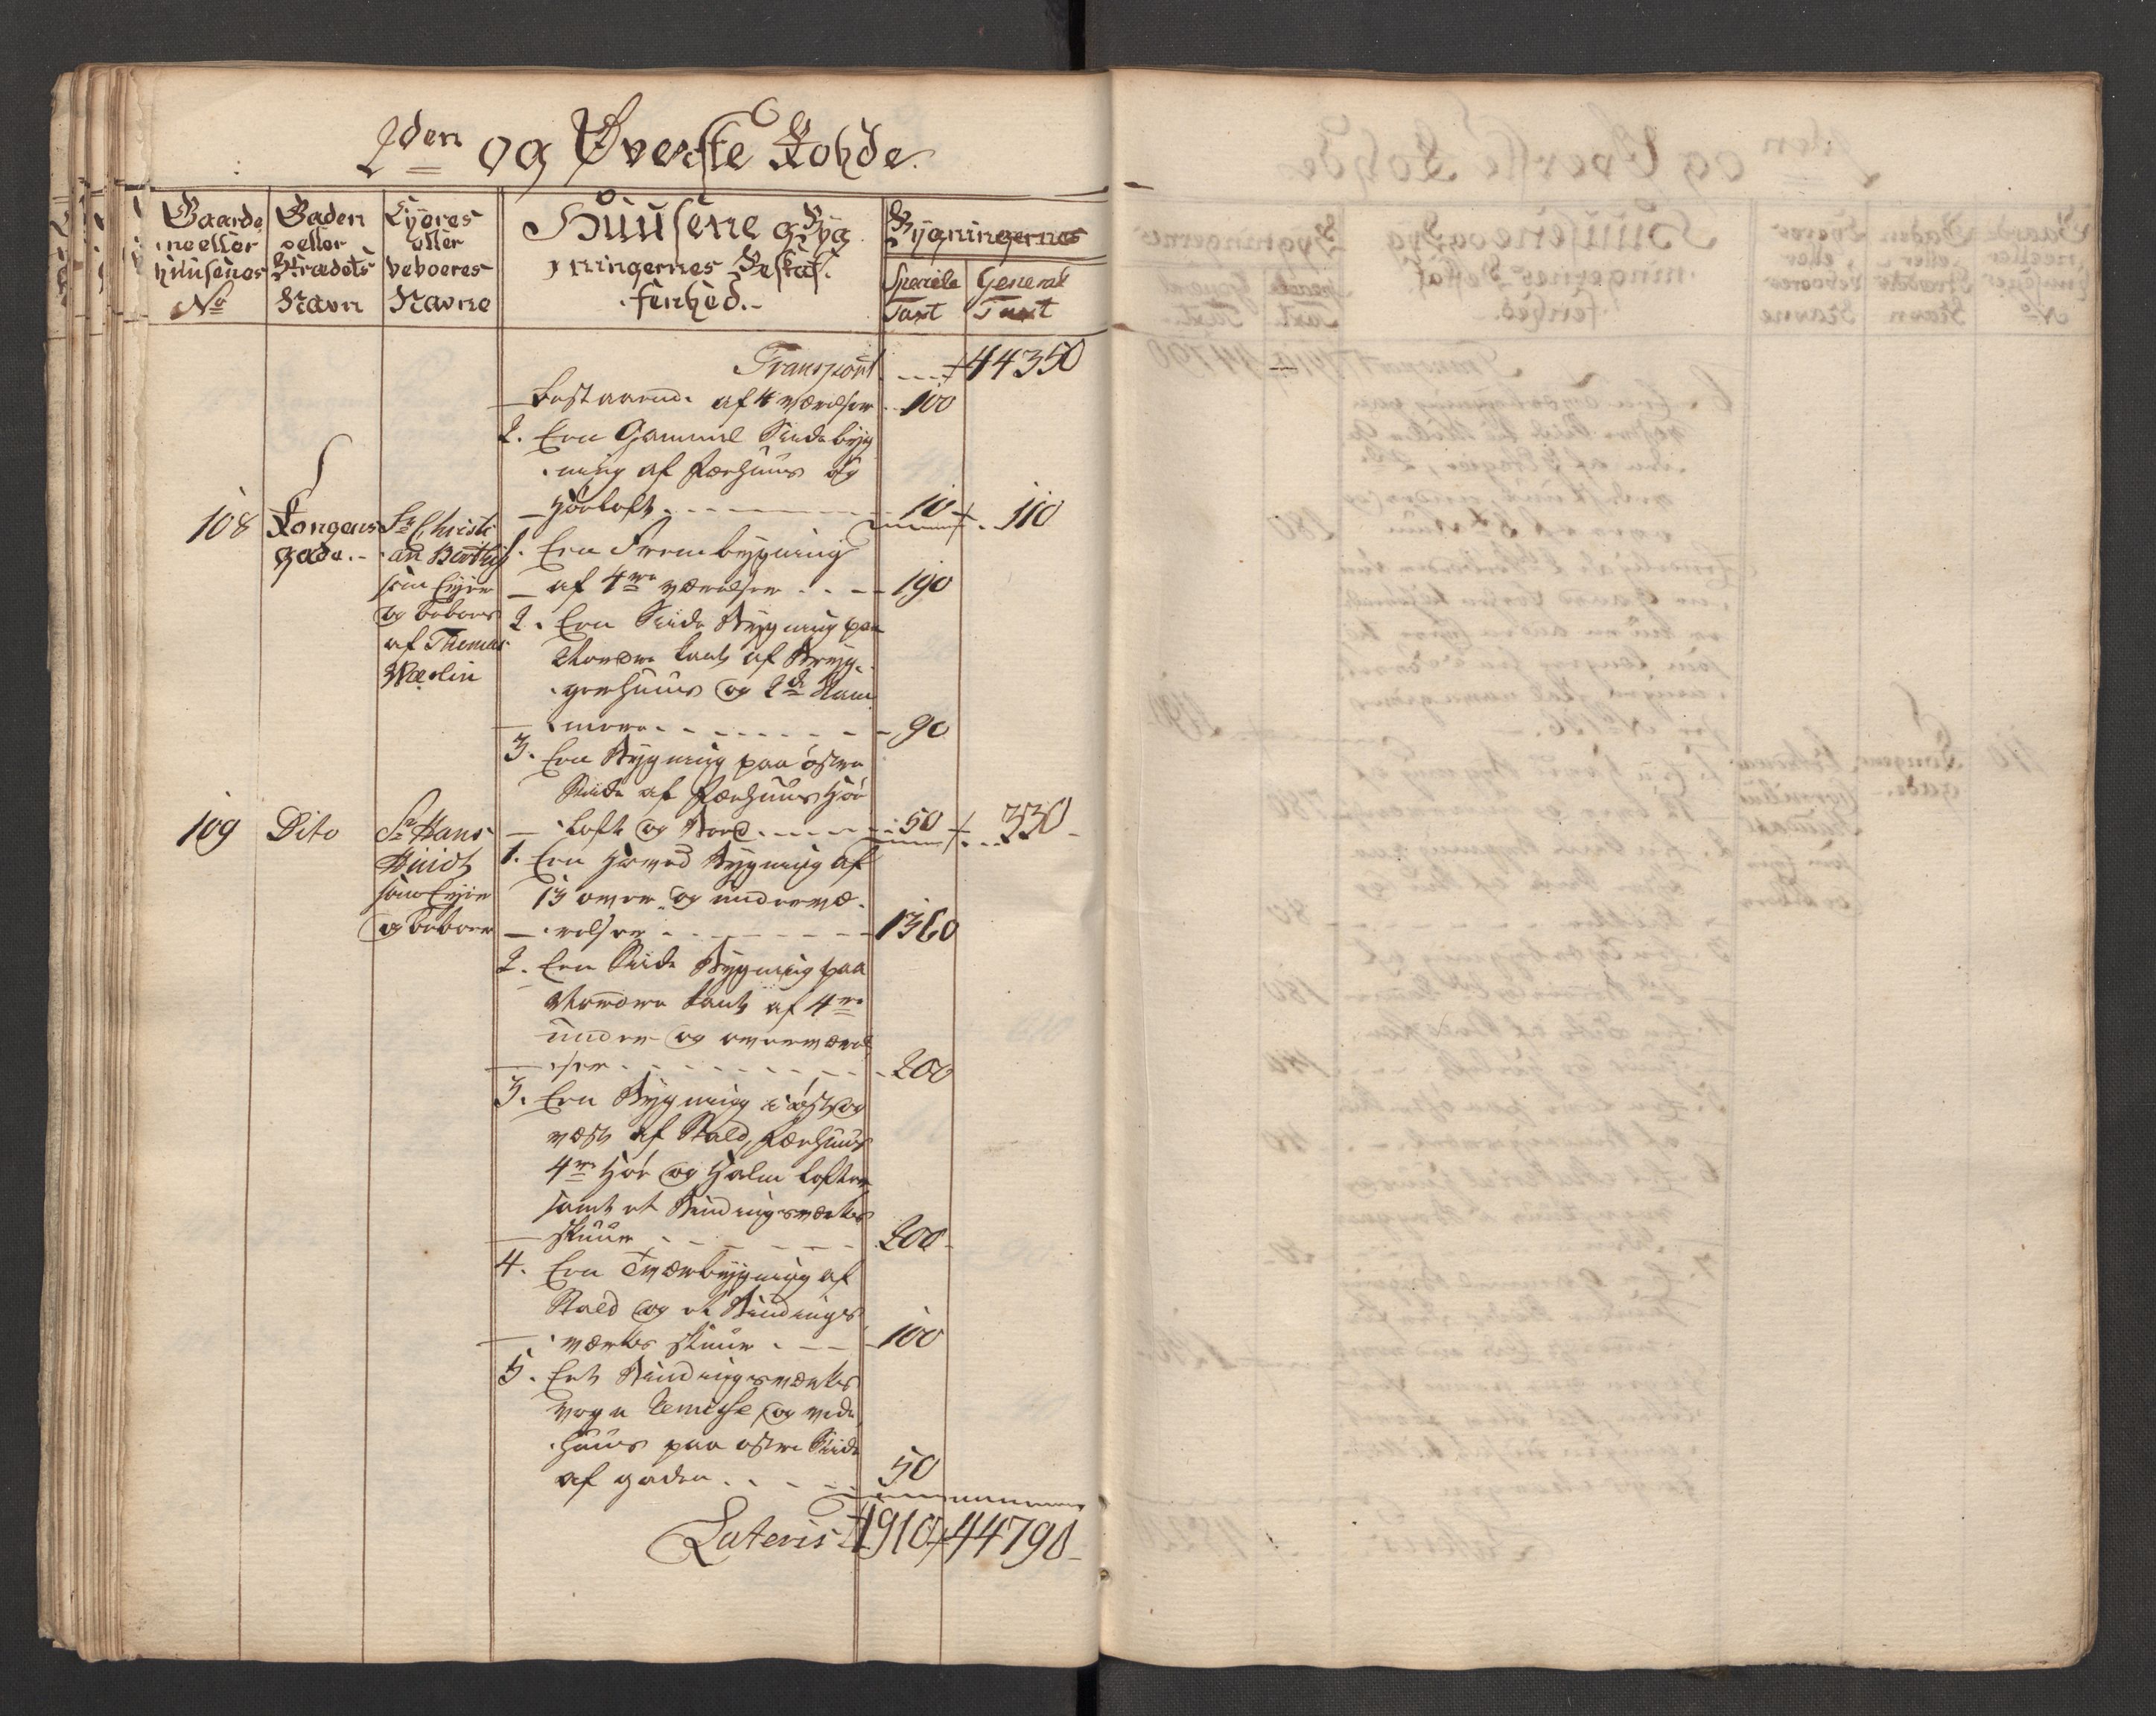 2den og Øverste Rohde
Gaarde
ne eller
Huusenes
No
Gaden
eller
Strædets
Navn
Eyeres
eller
beboeres
Navne
Huusene og Byg
ningernes Beskaf
fenhed.
Bygningernes
Speciele
Taxt
General
Taxt
Transport - 44350
bestaaende af 4 værelser - 100
2. Een Gammel Siide byg
ning af Færhuus og
Høeloft - 10 - 110
108 Kongens
gade.
Sr Christi
an Barthig
som Eyer
og beboes
af Thomas
Wærlin
1. Een Frembygning
af 4re værelser - 190
2. Een Siide Bygning paa
Nordre kant af Bryg
gerhuus og 2de Kam
mere - 90
3. Een Bygning paa østre
Siide af Færhuus Høe
loft og Bord - 50 - 330
109 Dito
Sr Hans
Huidt
som Eyer
og beboer
1. Een Hoved Bygning af
13 over og under væ
relser - 1360
2. Een Siide Bygning paa
Nordre kant af 4re
under og over værel
ser - 200
3. Een Bygning i øst og
vest af Stald, Færhuus
4re Høe og Halm lofter
samt et Bindingsværks
skuur - 200
4. Een Tværbygning af
Stald og et Bindings
værks skuur - 100
5. Eet Bindingsværks
Vogn Remisse og vede
huus paa østre Siide
af gaden - 50
Lateris 1910 44790